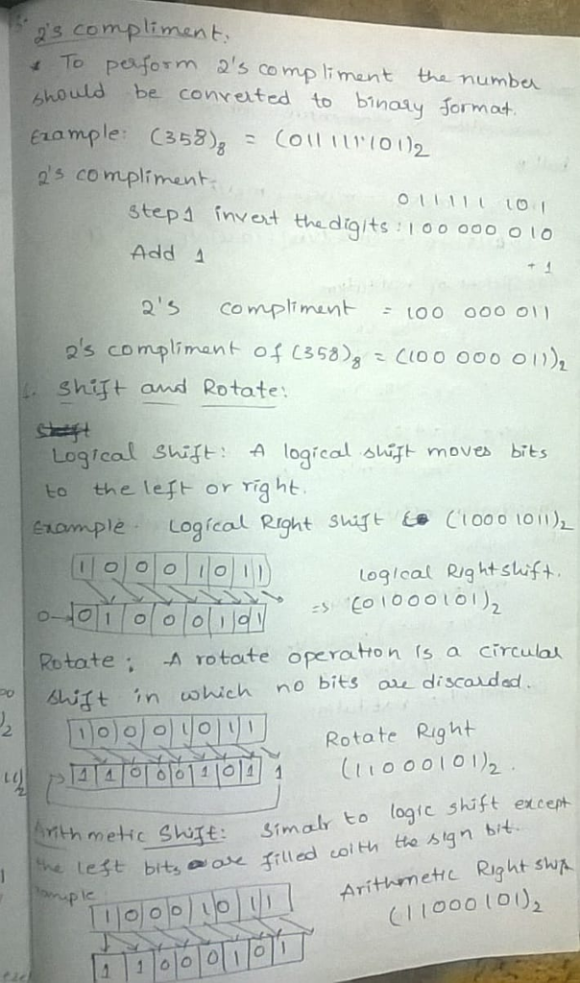 2's compliment:
* To perform 2's compliment the number
should be converted to binary format.
Example: (358)8 = (011 111 101)2
2's compliment:
011111 101
Step1 invert the digits: 100 000 010
Add 1
+ 1
2's compliment = 100 000 011
2's compliment of (358)8 = (100 000 011)2
Shift and Rotate:
Logical Shift: A logical shift moves bits
to the left or right.
Example. Logical Right Shift (1000 1011)2
1 0 0 0 1 0 1 1
Logical Right shift.
0 → 0 1 0 0 0 1 0 1
=> (01000101)2
Rotate: A rotate operation is a circular
shift in which no bits are discarded.
1 0 0 0 1 0 1 1
Rotate Right
1 1 0 0 0 1 0 1 1
(11000101)2.
Arithmetic Shift: Simalr to logic shift except
the left bits are filled with the sign bit.
1 0 0 0 1 0 1 1
Arithmetic Right Shift
1 1 0 0 0 1 0 1
(11000101)2